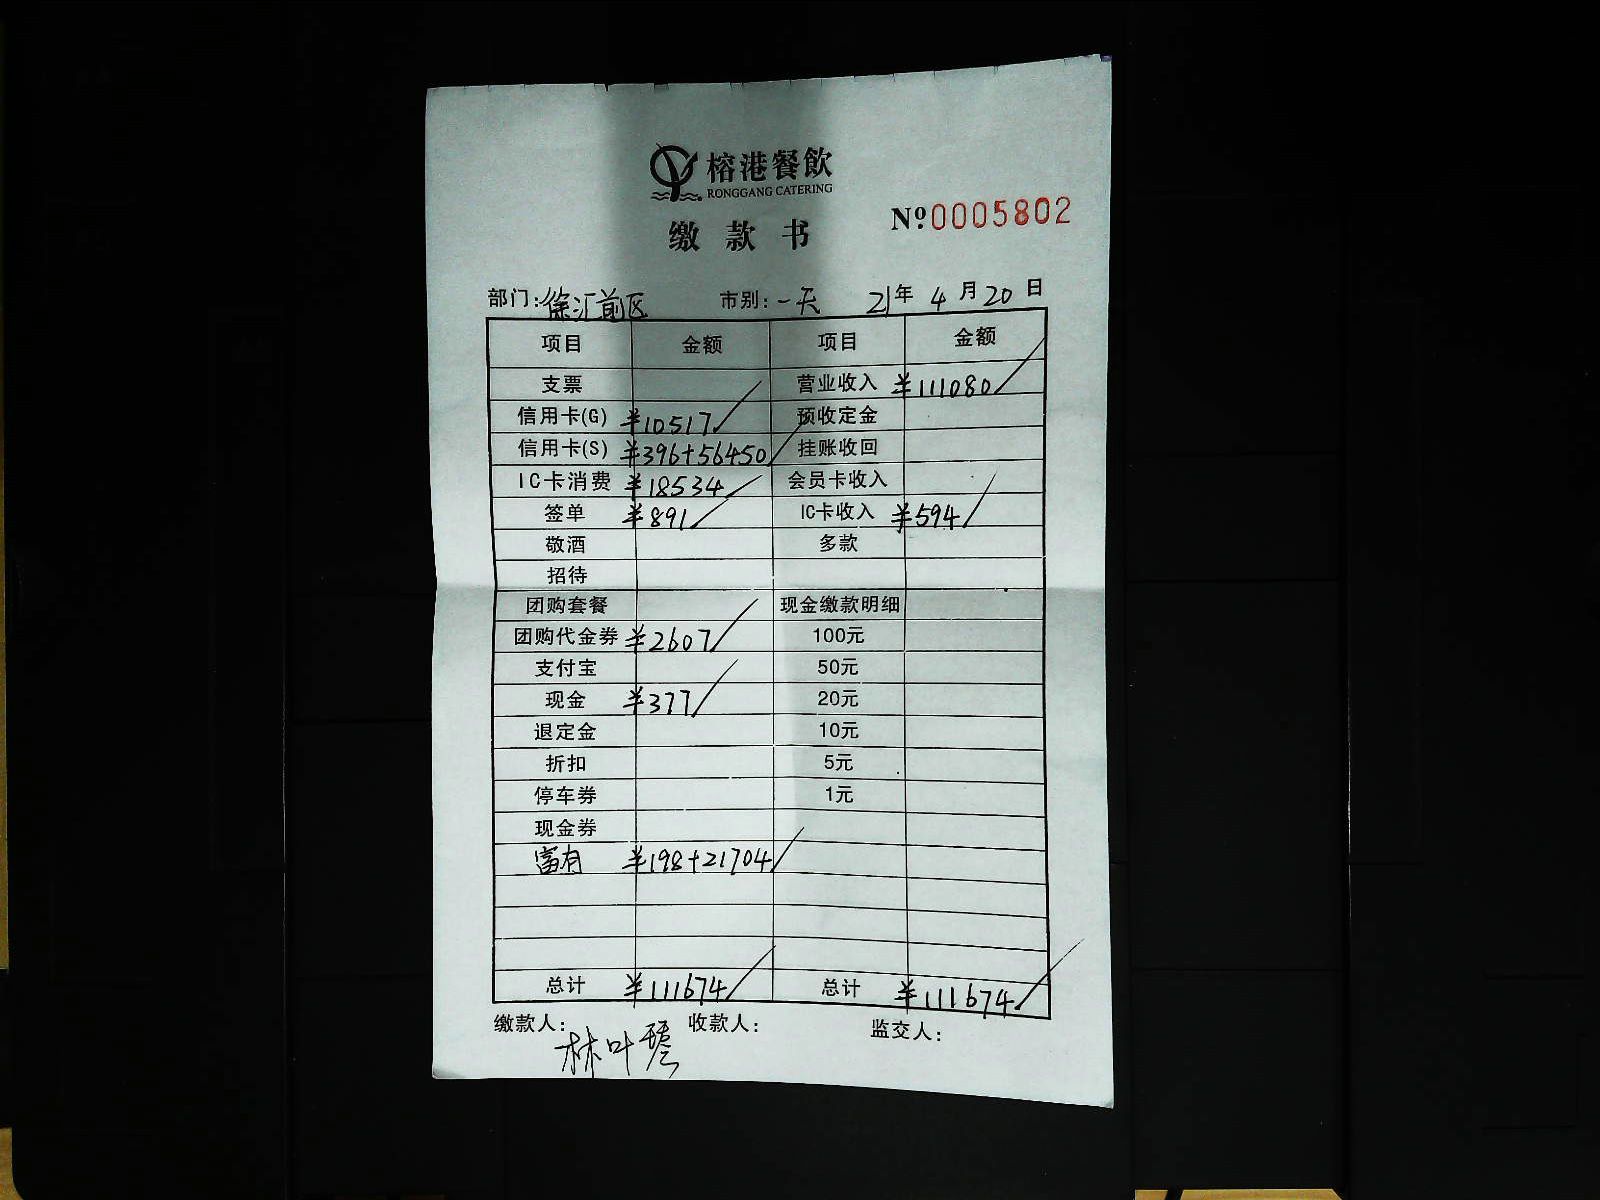 榕港餐飲
RONGGANG CATERING
缴款书
№0005802
部门:徐汇前区 市别:一天 21年4月20日
项目 金额 项目 金额
支票 营业收入 ¥111080
信用卡(G) ¥10517 预收定金
信用卡(S) ¥396+56450 挂账收回
IC卡消费 ¥18534 会员卡收入
签单 ¥891 IC卡收入 ¥594
敬酒 多款
招待
团购套餐 现金缴款明细
团购代金券 ¥2607 100元
支付宝 50元
现金 ¥377 20元
退定金 10元
折扣 5元
停车券 1元
现金券
富有 ¥198+21704
总计 ¥111674 总计 ¥111674
缴款人: 林叶 收款人: 监交人: